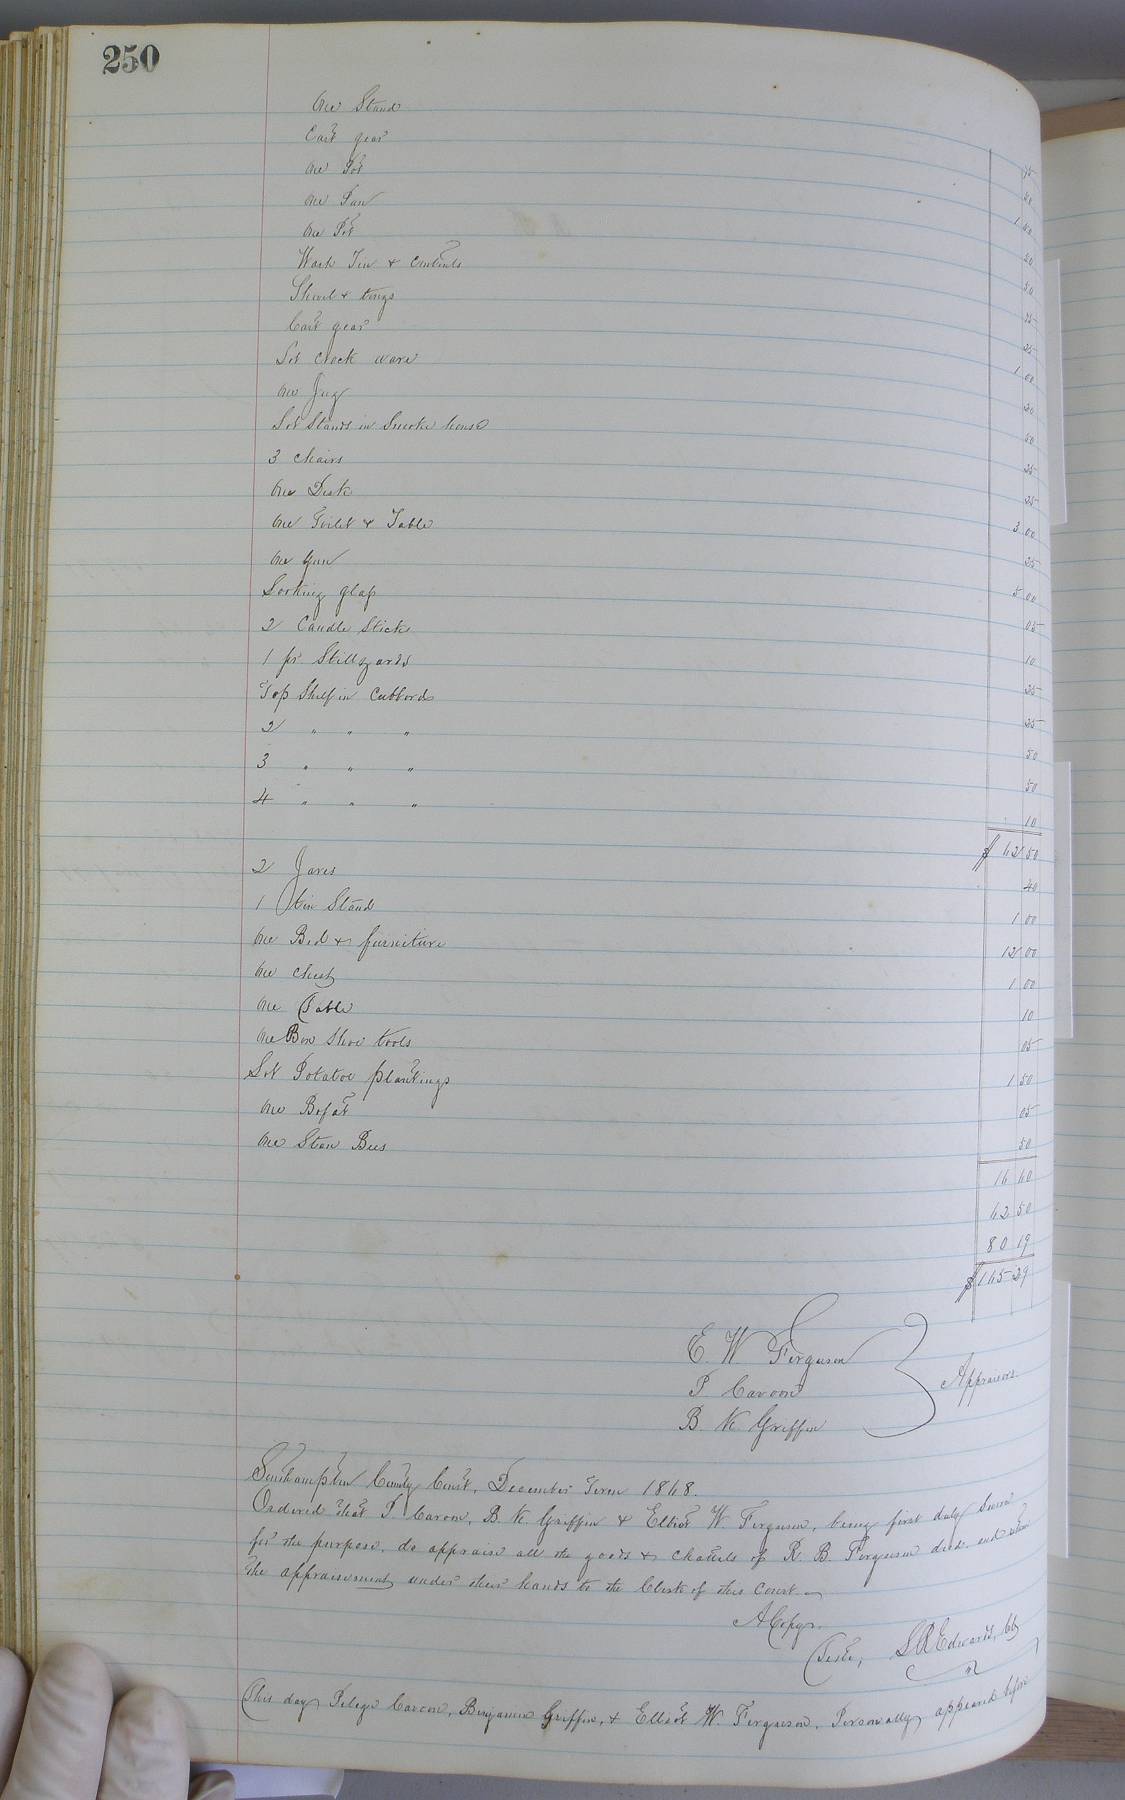 250
One Stand 75
Cart gear 50
One Pot 1 50
One Pan 20
One Pot 50
Wash Tin & contents 75
Shovel & tongs 25
Cart gear 1 00
Lot Crock ware 20
One Jug 60
Lot Stands in Smoke house 25
3 chairs 25
One Desk 3 00
One Toilet & Table 25
One Gun 5 00
Looking glass 05
2 Candle Sticks 10
1 pr Stillyards 25
Top Shelf in Cubbord 25
2 " " " 50
3 " " " 50
4 " " " 10
$ 62 50
2 Jares 40
1 tin Stand 1 00
One Bed & furniture 12 00
One chest 1 00
One Table 10
One Box Shoe tools 05
Lot Potatoe plantings 1 50
One Bofat 05
One Stan Bees 50
16 60
62 50
80 19
$ 165 29
E. W Ferguson
P Carson
B. K Griffin
Appraisors.
Southampton County Court, December Term 1868.
Ordered that P. Carson, B. K. Griffin & Elliot W. Ferguson, being first duly sworn
for the purpose, do appraise all the goods & chattels of R. B. Ferguson decd. and return
the appraisement under their hands to the Clerk of this Court
A Copy.
Teste, L R Edwards, Clk
This day Carson, Benjamin Griffin, & Elliot W. Ferguson, Personally appeared before